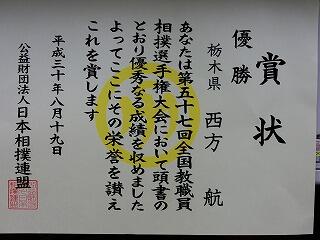 賞状
優勝
栃木県 西方 航
あなたは第五十七回全国教職員
相撲選手権大会において頭書の
とおり優秀なる成績を収めました
よってここにその栄誉を讃え
これを賞します
平成三十年八月十九日
公益財団法人日本相撲連盟